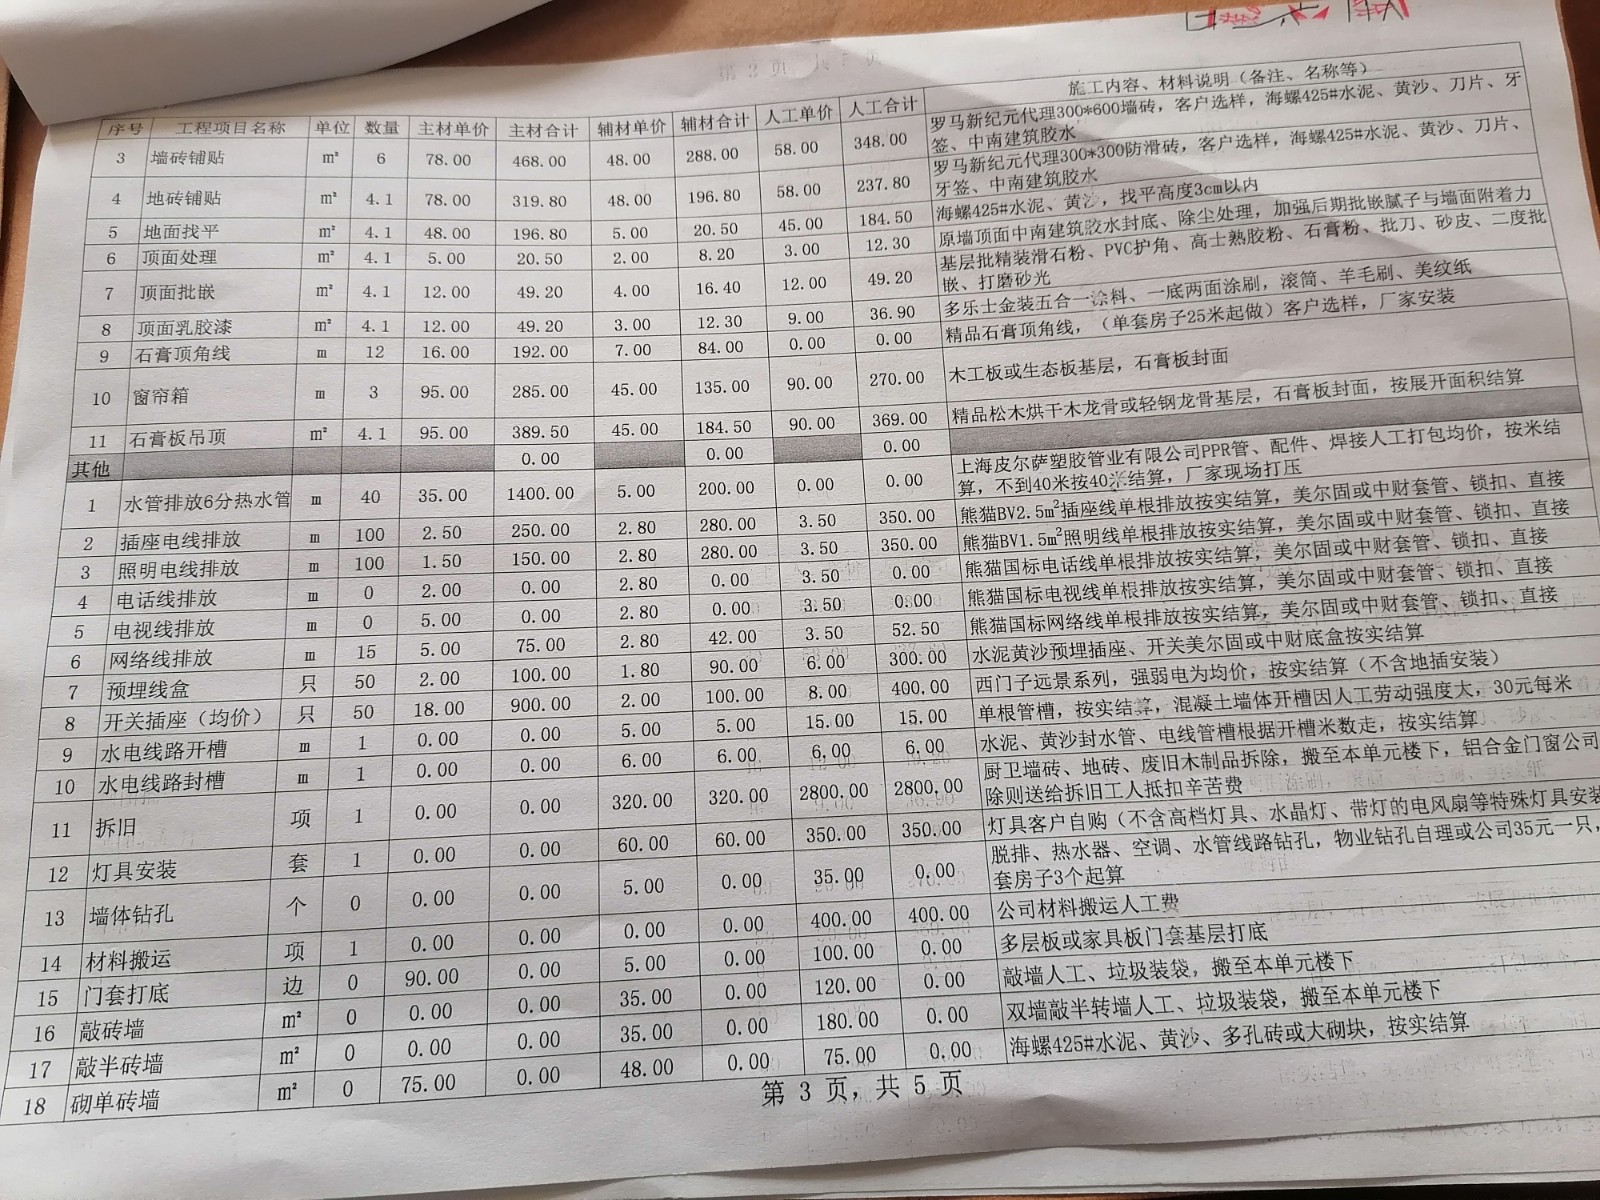 序号 工程项目名称 单位 数量 主材单价 主材合计 辅材单价 辅材合计 人工单价 人工合计 施工内容、材料说明（备注、名称等）
3 墙砖铺贴 m² 6 78.00 468.00 48.00 288.00 58.00 348.00 罗马新纪元代理300*600墙砖，客户选样，海螺425#水泥、黄沙、刀片、牙
签、中南建筑胶水
4 地砖铺贴 m² 4.1 78.00 319.80 48.00 196.80 58.00 237.80 罗马新纪元代理300*300防滑砖，客户选样，海螺425#水泥、黄沙、刀片、
牙签、中南建筑胶水
5 地面找平 m² 4.1 48.00 196.80 5.00 20.50 45.00 184.50 海螺425#水泥、黄沙，找平高度3cm以内
6 顶面处理 m² 4.1 5.00 20.50 2.00 8.20 3.00 12.30 原墙顶面中南建筑胶水封底、除尘处理，加强后期批嵌腻子与墙面附着力
7 顶面批嵌 m² 4.1 12.00 49.20 4.00 16.40 12.00 49.20 基层批精装滑石粉、PVC护角、高士熟胶粉、石膏粉、批刀、砂皮、二度批
嵌、打磨砂光
8 顶面乳胶漆 m² 4.1 12.00 49.20 3.00 12.30 9.00 36.90 多乐士金装五合一涂料、一底两面涂刷，滚筒、羊毛刷、美纹纸
9 石膏顶角线 m 12 16.00 192.00 7.00 84.00 0.00 0.00 精品石膏顶角线，（单套房子25米起做）客户选样，厂家安装
10 窗帘箱 m 3 95.00 285.00 45.00 135.00 90.00 270.00 木工板或生态板基层，石膏板封面
11 石膏板吊顶 m² 4.1 95.00 389.50 45.00 184.50 90.00 369.00 精品松木烘干木龙骨或轻钢龙骨基层，石膏板封面，按展开面积结算
其他 0.00 0.00 0.00
1 水管排放6分热水管 m 40 35.00 1400.00 5.00 200.00 0.00 0.00 上海皮尔萨塑胶管业有限公司PPR管、配件、焊接人工打包均价，按米结
算，不到40米按40米结算，厂家现场打压
2 插座电线排放 m 100 2.50 250.00 2.80 280.00 3.50 350.00 熊猫BV2.5m²插座线单根排放按实结算，美尔固或中财套管、锁扣、直接
3 照明电线排放 m 100 1.50 150.00 2.80 280.00 3.50 350.00 熊猫BV1.5m²照明线单根排放按实结算，美尔固或中财套管、锁扣、直接
4 电话线排放 m 0 2.00 0.00 2.80 0.00 3.50 0.00 熊猫国标电话线单根排放按实结算，美尔固或中财套管、锁扣、直接
5 电视线排放 m 0 5.00 0.00 2.80 0.00 3.50 0.00 熊猫国标电视线单根排放按实结算，美尔固或中财套管、锁扣、直接
6 网络线排放 m 15 5.00 75.00 2.80 42.00 3.50 52.50 熊猫国标网络线单根排放按实结算，美尔固或中财套管、锁扣、直接
7 预埋线盒 只 50 2.00 100.00 1.80 90.00 6.00 300.00 水泥黄沙预埋插座、开关美尔固或中财底盒按实结算
8 开关插座（均价） 只 50 18.00 900.00 2.00 100.00 8.00 400.00 西门子远景系列，强弱电为均价，按实结算（不含地插安装）
9 水电线路开槽 m 1 0.00 0.00 5.00 5.00 15.00 15.00 单根管槽，按实结算，混凝土墙体开槽因人工劳动强度大，30元每米
10 水电线路封槽 m 1 0.00 0.00 6.00 6.00 6.00 6.00 水泥、黄沙封水管、电线管槽根据开槽米数走，按实结算
11 拆旧 项 1 0.00 0.00 320.00 320.00 2800.00 2800.00 厨卫墙砖、地砖、废旧木制品拆除，搬至本单元楼下，铝合金门窗公司
除则送给拆旧工人抵扣辛苦费
12 灯具安装 套 1 0.00 0.00 60.00 60.00 350.00 350.00 灯具客户自购（不含高档灯具、水晶灯、带灯的电风扇等特殊灯具安装
13 墙体钻孔 个 0 0.00 0.00 5.00 0.00 35.00 0.00 脱排、热水器、空调、水管线路钻孔，物业钻孔自理或公司35元一只，
套房子3个起算
14 材料搬运 项 1 0.00 0.00 0.00 0.00 400.00 400.00 公司材料搬运人工费
15 门套打底 边 0 90.00 0.00 5.00 0.00 100.00 0.00 多层板或家具板门套基层打底
16 敲砖墙 m² 0 0.00 0.00 35.00 0.00 120.00 0.00 敲墙人工、垃圾装袋，搬至本单元楼下
17 敲半砖墙 m² 0 0.00 0.00 35.00 0.00 180.00 0.00 双墙敲半转墙人工、垃圾装袋，搬至本单元楼下
18 砌单砖墙 m² 0 75.00 0.00 48.00 0.00 75.00 0.00 海螺425#水泥、黄沙、多孔砖或大砌块，按实结算
第 3 页，共 5 页